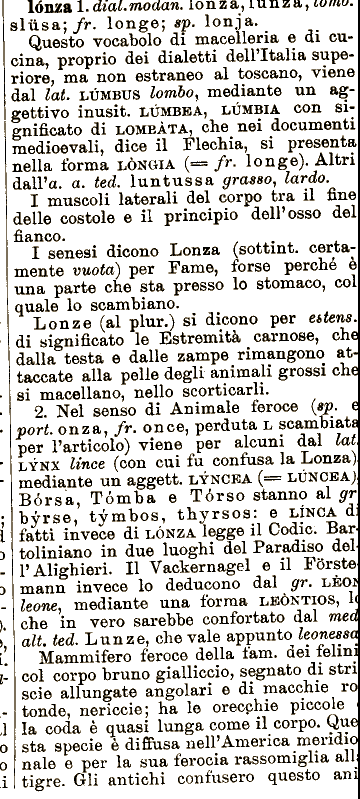 lónza 1. dial. modan. lonza, lunza, lomb.
slüsa; fr. longe; sp. lonja.
Questo vocabolo di macelleria e di cu-
cina, proprio dei dialetti dell'Italia supe-
riore, ma non estraneo al toscano, viene
dal lat. LÚMBUS lombo, mediante un ag-
gettivo inusit. LÚMBEA, LÚMBIA con si-
gnificato di LOMBÀTA, che nei documenti
medioevali, dice il Flechia, si presenta
nella forma LÒNGIA (= fr. longe). Altri
dall'a. a. ted. luntussa grasso, lardo.
I muscoli laterali del corpo tra il fine
delle costole e il principio dell'osso del
fianco.
I senesi dicono Lonza (sottint. certa-
mente vuota) per Fame, forse perchè è
una parte che sta presso lo stomaco, col
quale lo scambiano.
Lonze (al plur.) si dicono per estens.
di significato le Estremità carnose, che
dalla testa e dalle zampe rimangono at-
taccate alla pelle degli animali grossi che
si macellano, nello scorticarli.
2. Nel senso di Animale feroce (sp. e
port. onza, fr. once, perduta L scambiata
per l'articolo) viene per alcuni dal lat.
LÝNX lince (con cui fu confusa la Lonza)
mediante un aggett. LÝNCEA (= LÚNCEA)
Bórsa, Tómba e Tórso stanno al gr
býrse, týmbos, thyrsos: e LÍNCA di
fatti invece di LÓNZA legge il Codic. Bar-
toliniano in due luoghi del Paradiso del-
l'Alighieri. Il Vackernagel e il Förste-
mann invece lo deducono dal gr. LÈON
leone, mediante una forma LEÒNTIOS, l
che in vero sarebbe confortato dal med
alt. ted. Lunze, che vale appunto leonessa
Mammifero feroce della fam. dei felini
col corpo bruno gialliccio, segnato di stri
scie allungate angolari e di macchie ro
tonde, nericcie; ha le orecchie piccole
la coda è quasi lunga come il corpo. Que
sta specie è diffusa nell'America meridio
nale e per la sua ferocia rassomiglia all
tigre. Gli antichi confusero questo ani